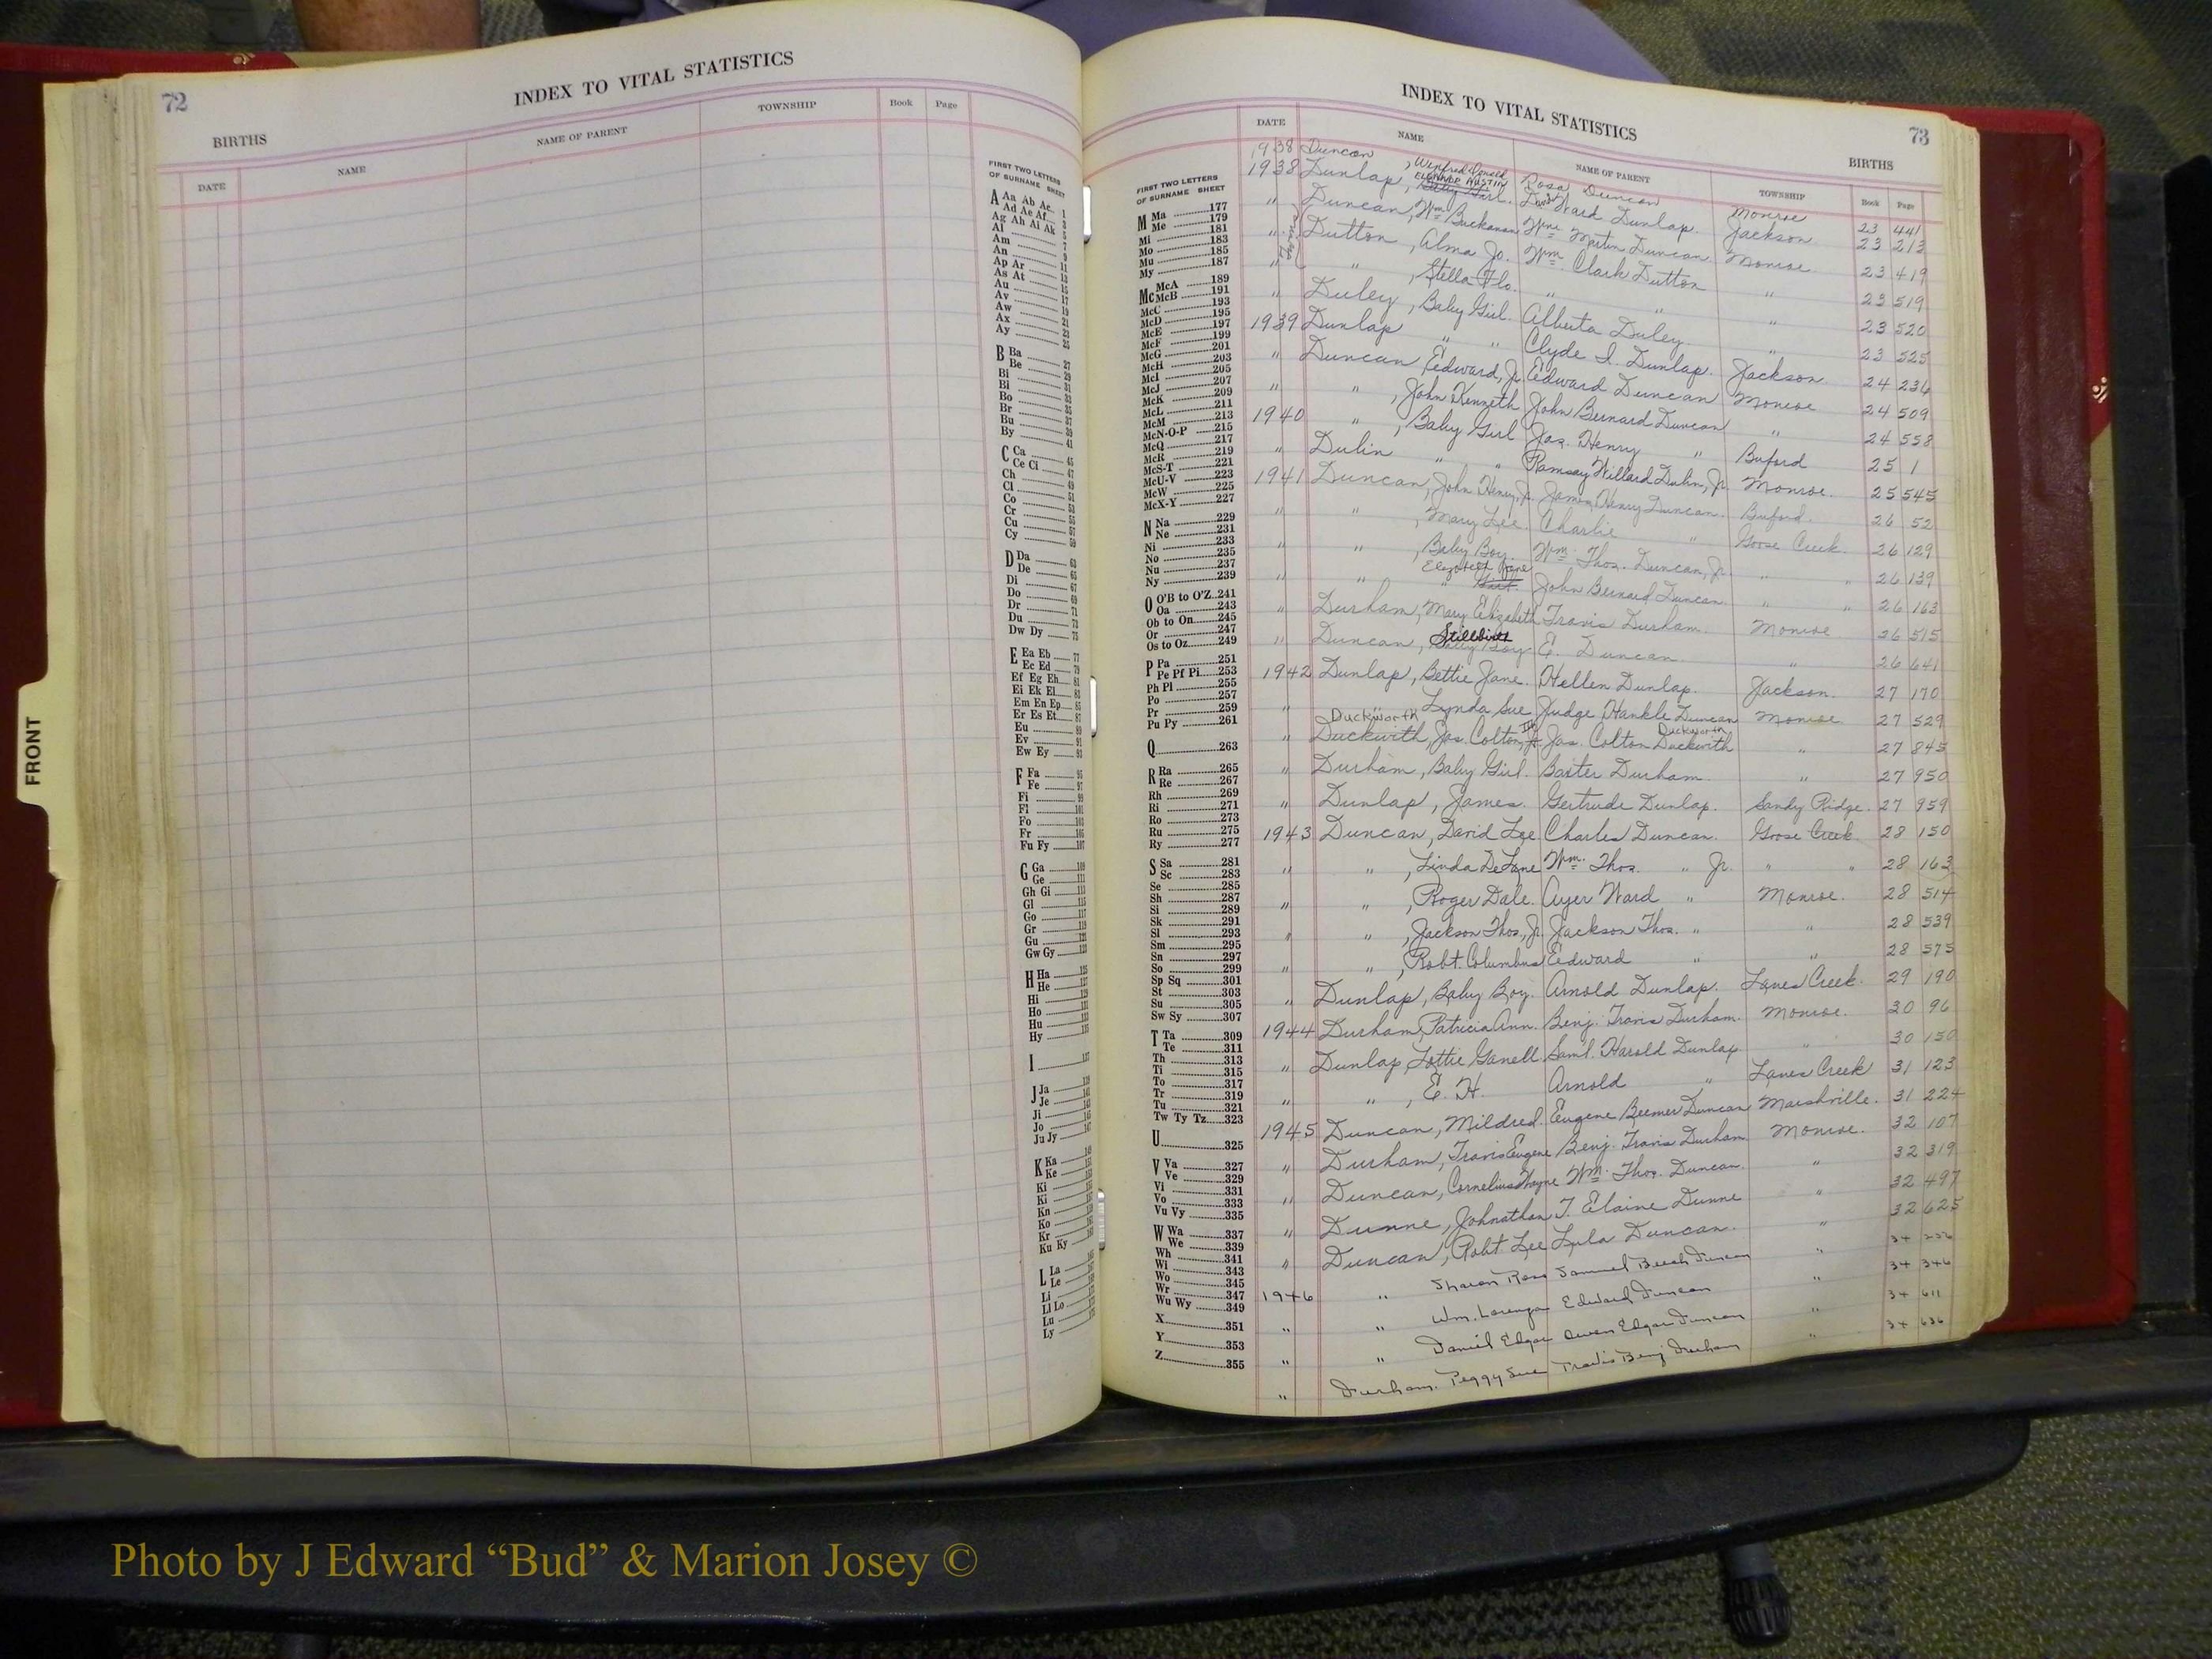 72
INDEX TO VITAL STATISTICS
BIRTHS
DATE NAME NAME OF PARENT TOWNSHIP Book Page
FIRST TWO LETTERS
OF SURNAME SHEET
A Aa Ab Ac 1
Ad Ae Af
Ag Ah Ai Ak
Al
Am
An
Ap Ar 11
As At
Au
Av
Aw
Ax
Ay
B Ba 27
Be 29
Bi
Bi
Bo
Br
Bu
By 41
C Ca 45
Ce Ci 47
Ch
Cl
Co
Cr
Cu
Cy 59
D Da 63
De 65
Di 67
Do 69
Dr 71
Du 73
Dw Dy 75
E Ea Eb 77
Ec Ed 79
Ef Eg Eh 81
Ei Ek El
Em En Ep
Er Es Et 87
Eu 89
Ev 91
Ew Ey 93
F Fa 95
Fe 97
Fi 99
Fl
Fo
Fr
Fu Fy 107
G Ga 109
Ge 111
Gh Gi 113
Gl 115
Go 117
Gr
Gu
Gw Gy
H Ha 125
He
Hi
Ho
Hu
Hy
I
J Ja
Je
Ji
Jo
Ju Jy
K Ka
Ke
Ki
Ki
Kn
Ko
Kr
Ku Ky
L La
Le
Li
Ll Lo
Lu
Ly
FRONT
INDEX TO VITAL STATISTICS
73
BIRTHS
DATE NAME NAME OF PARENT TOWNSHIP Book Page
FIRST TWO LETTERS
OF SURNAME SHEET
M Ma 177
Me 179
Mi 181
Mo 183
Mu 185
My 187
Mc McA 189
McB 191
McC 193
McD 195
McE 197
McF 199
McG 201
McH 203
McI 205
McJ 207
McK 209
McL 211
McM 213
McN-O-P 215
McQ 217
McR 219
McS-T 221
McU-V 223
McW 225
McX-Y 227
N Na 229
Ne 231
Ni 233
No 235
Nu 237
Ny 239
O O'B to O'Z 241
Oa 243
Ob to On 245
Or 247
Os to Oz 249
P Pa 251
Pe Pf Pi 253
Ph Pl 255
Po 257
Pr 259
Pu Py 261
Q 263
R Ra 265
Re 267
Rh 269
Ri 271
Ro 273
Ru 275
Ry 277
S Sa 281
Sc 283
Se 285
Sh 287
Si 289
Sk 291
Sl 293
Sm 295
Sn 297
So 299
Sp Sq 301
St 303
Su 305
Sw Sy 307
T Ta 309
Te 311
Th 313
Ti 315
To 317
Tr 319
Tu 321
Tw Ty Tz 323
U 325
V Va 327
Ve 329
Vi 331
Vo 333
Vu Vy 335
W Wa 337
We 339
Wh 341
Wi 343
Wo 345
Wr 347
Wu Wy 349
X 351
Y 353
Z 355
1938 Duncan, Winfred Donald Rosa Duncan Monroe 23 441
1938 Dunlap, ELEANOR AUSTIN Baby Girl. Dwight Ward Dunlap. Jackson 23 213
" Duncan, Wm Buchanan Wm. Martin Duncan. Monroe 23 419
" Dutton, Alma Jo. Wm. Clark Dutton " 23 519
" " , Stella Flo. " " " 23 520
" Duley, Baby Girl. Alberta Duley " 23 525
1939 Dunlap " " Clyde I. Dunlap. Jackson 24 236
" Duncan Edward, Jr. Edward Duncan Monroe 24 509
" " , John Kenneth John Bernard Duncan " 24 558
1940 " , Baby Girl Jas. Henry " Buford 25 1
" Dulin " " Ramsay Willard Dulin, Jr. Monroe. 25 545
1941 Duncan, John Henry, Jr. James Henry Duncan. Buford. 26 52
" " , Mary Lee. Charlie " Goose Creek. 26 129
" " , Baby Boy. Wm. Thos. Duncan, Jr. " " 26 139
" " " Elizabeth Jane Girl. John Bernard Duncan. " " 26 163
" Durham, Mary Elizabeth Travis Durham. Monroe 26 515
" Duncan, Stillbirth Baby Boy E. Duncan. " 26 641
1942 Dunlap, Bettie Jane. Hellen Dunlap. Jackson. 27 170
" " Lynda Sue Judge Hankle Duncan Monroe. 27 529
Duckworth Duckworth
" Duckwith, Jas. Colton, Jr. III Jas. Colton Duckwith " 27 845
" Durham, Baby Girl. Baxter Durham. " 27 950
" Dunlap, James. Gertrude Dunlap. Sandy Ridge. 27 959
1943 Duncan, David Lee Charles Duncan. Goose Creek. 28 150
" " , Linda DeLane Wm. Thos. " Jr. " " 28 163
" " , Roger Dale. Ayer Ward " Monroe. 28 514
" " , Jackson Thos., Jr. Jackson Thos. " " 28 539
" " , Robt. Columbus Edward " " 28 575
" Dunlap, Baby Boy. Arnold Dunlap. Lanes Creek. 29 190
1944 Durham, Patricia Ann. Benj. Travis Durham. Monroe. 30 96
" Dunlap, Lottie Ganell. Saml. Harold Dunlap " 30 150
" " , E. H. Arnold " Lanes Creek 31 123
1945 Duncan, Mildred. Eugene Beemer Duncan Marshville. 31 224
" Durham, Travis Eugene Benj. Travis Durham Monroe. 32 107
" Duncan, Cornelius Wayne Wm. Thos. Duncan. " 32 319
" Dunne, Johnathan T. Elaine Dunne " 32 497
" Duncan, Robt. Lee Lula Duncan. " 32 625
1946 " Sharon Rose Samuel Beech Duncan " 34 236
" " Wm. Lorenza Edward Duncan " 34 346
" " Daniel Edgar Owen Edgar Duncan " 34 611
" Durham. Peggy Sue Travis Benj Durham " 34 636
Photo by J Edward “Bud” & Marion Josey ©